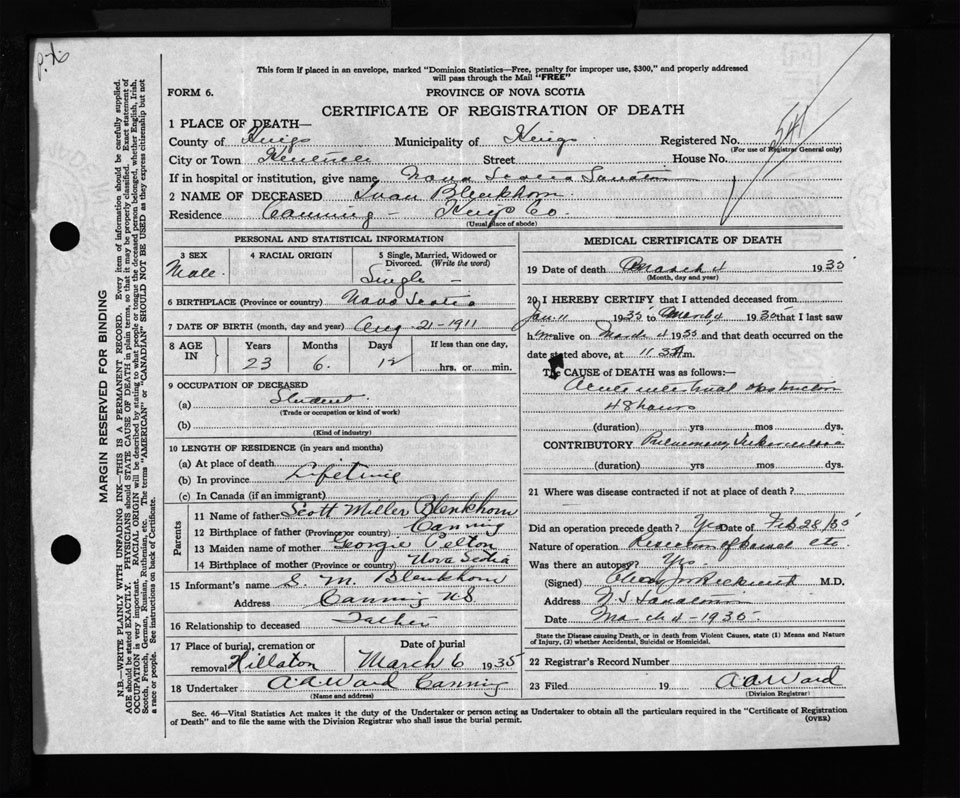 This form if placed in an envelope, marked "Dominion Statistics—Free, penalty for improper use, $300," and properly addressed
will pass through the Mail "FREE"
FORM 6.
PROVINCE OF NOVA SCOTIA
CERTIFICATE OF REGISTRATION OF DEATH
1 PLACE OF DEATH—
County of Kings Municipality of Kings Registered No. 541
(For use of Registrar General only)
City or Town Street House No.
If in hospital or institution, give name Nova Scotia
2 NAME OF DECEASED Blenkhorn
Residence Canning — Kings Co.
(Usual place of abode)
PERSONAL AND STATISTICAL INFORMATION
3 SEX 4 RACIAL ORIGIN 5 Single, Married, Widowed or
Divorced. (Write the word)
Male. Single —
6 BIRTHPLACE (Province or country) Nova Scotia
7 DATE OF BIRTH (month, day and year) Aug - 21 - 1911
8 AGE IN Years Months Days If less than one day,
23 6. 12 hrs. or min.
9 OCCUPATION OF DECEASED
(a) Student.
(Trade or occupation or kind of work)
(b)
(Kind of industry)
10 LENGTH OF RESIDENCE (in years and months)
(a) At place of death
(b) In province Lifetime
(c) In Canada (if an immigrant)
Parents
11 Name of father Scott Miller Blenkhorn
12 Birthplace of father (Province or country) Canning
13 Maiden name of mother Georgie Pelton
14 Birthplace of mother (Province or country) Nova Scotia
15 Informant's name S. M. Blenkhorn
Address Canning N.S.
16 Relationship to deceased Father
17 Place of burial, cremation or removal Hillaton
Date of burial
March 6 1935
18 Undertaker A.A. Ward Canning
(Name and address)
MEDICAL CERTIFICATE OF DEATH
19 Date of death March 4 1935
(Month, day and year)
20 I HEREBY CERTIFY that I attended deceased from
Jan. 11 1935 to March 4 1935 that I last saw
h im alive on March 4 1935 and that death occurred on the
date stated above, at 11.30 m.
The CAUSE OF DEATH was as follows:—
Acute intestinal obstruction
48 hours
(duration) yrs mos dys.
CONTRIBUTORY Pulmonary Tuberculosis
(duration) yrs mos dys.
21 Where was disease contracted if not at place of death?
Did an operation precede death? Yes Date of Feb 28/35
Nature of operation Resection of bowel etc.
Was there an autopsy? Yes.
(Signed) M.D.
Address N.S. Sanatorium
Date March 4 - 1935
State the Disease causing Death, or in death from Violent Causes, state (1) Means and Nature
of Injury, (2) whether Accidental, Suicidal or Homicidal.
22 Registrar's Record Number
23 Filed 19 A.A. Ward
(Division Registrar)
Sec. 46—Vital Statistics Act makes it the duty of the Undertaker or person acting as Undertaker to obtain all the particulars required in the "Certificate of Registration
of Death" and to file the same with the Division Registrar who shall issue the burial permit.
(OVER)
MARGIN RESERVED FOR BINDING
N.B.—WRITE PLAINLY WITH UNFADING INK—THIS IS A PERMANENT RECORD. Every item of information should be carefully supplied.
AGE should be stated EXACTLY. PHYSICIANS should STATE CAUSE OF DEATH in plain terms, so that it may be properly classified. Exact statement of
OCCUPATION is very important. RACIAL ORIGIN will be described by stating to what people or tongue the deceased person belonged, whether English, Irish,
Scotch, French, German, Russian, Ruthenian, etc. The terms "AMERICAN" or "CANADIAN" SHOULD NOT BE USED as they express citizenship but not
a race or people. See instructions on back of Certificate.